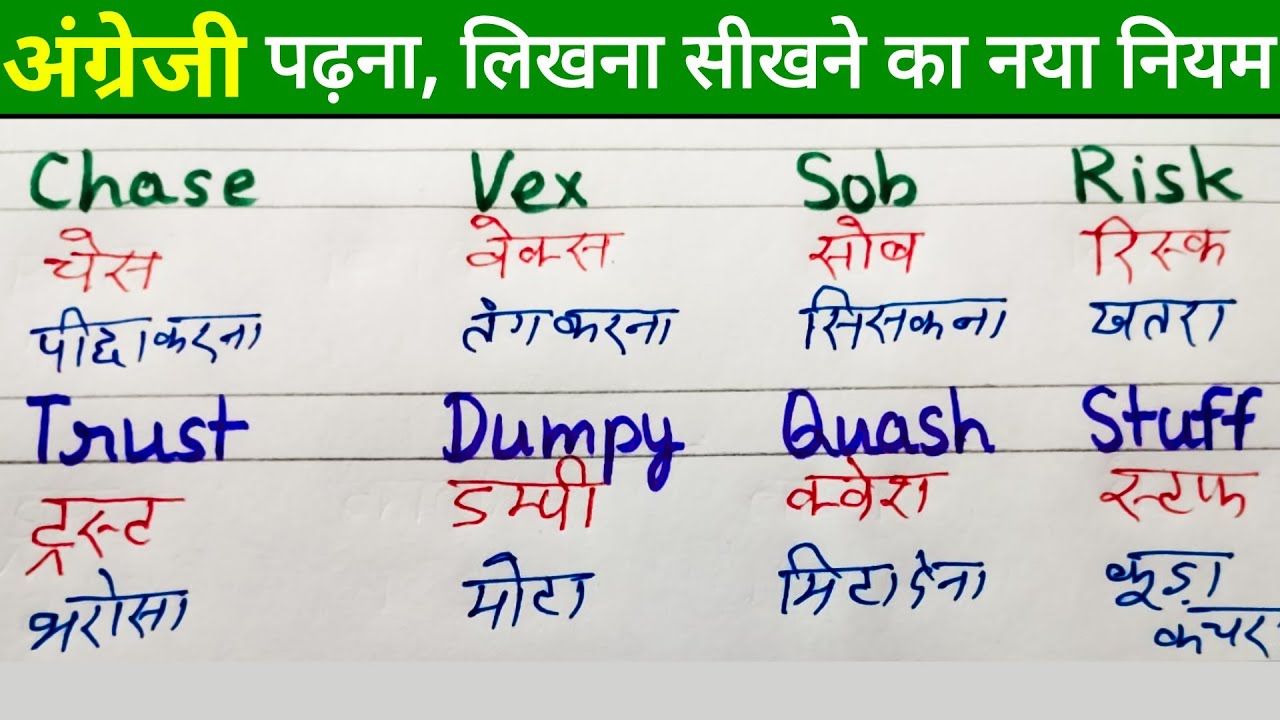 अंग्रेजी पढ़ना, लिखना सीखने का नया नियम
Chase Vex Sob Risk
चेस वेक्स सोब रिस्क
पीछाकरना तंगकरना सिसकना खतरा
Trust Dumpy Quash Stuff
ट्रस्ट डम्पी क्वेश स्टफ
भरोसा मोटा मिटादेना कूड़ा
कचर